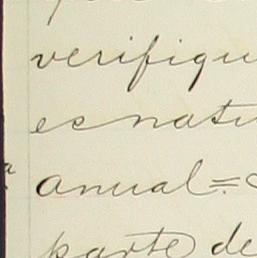 verifiqu
es natu
anual =
parte de